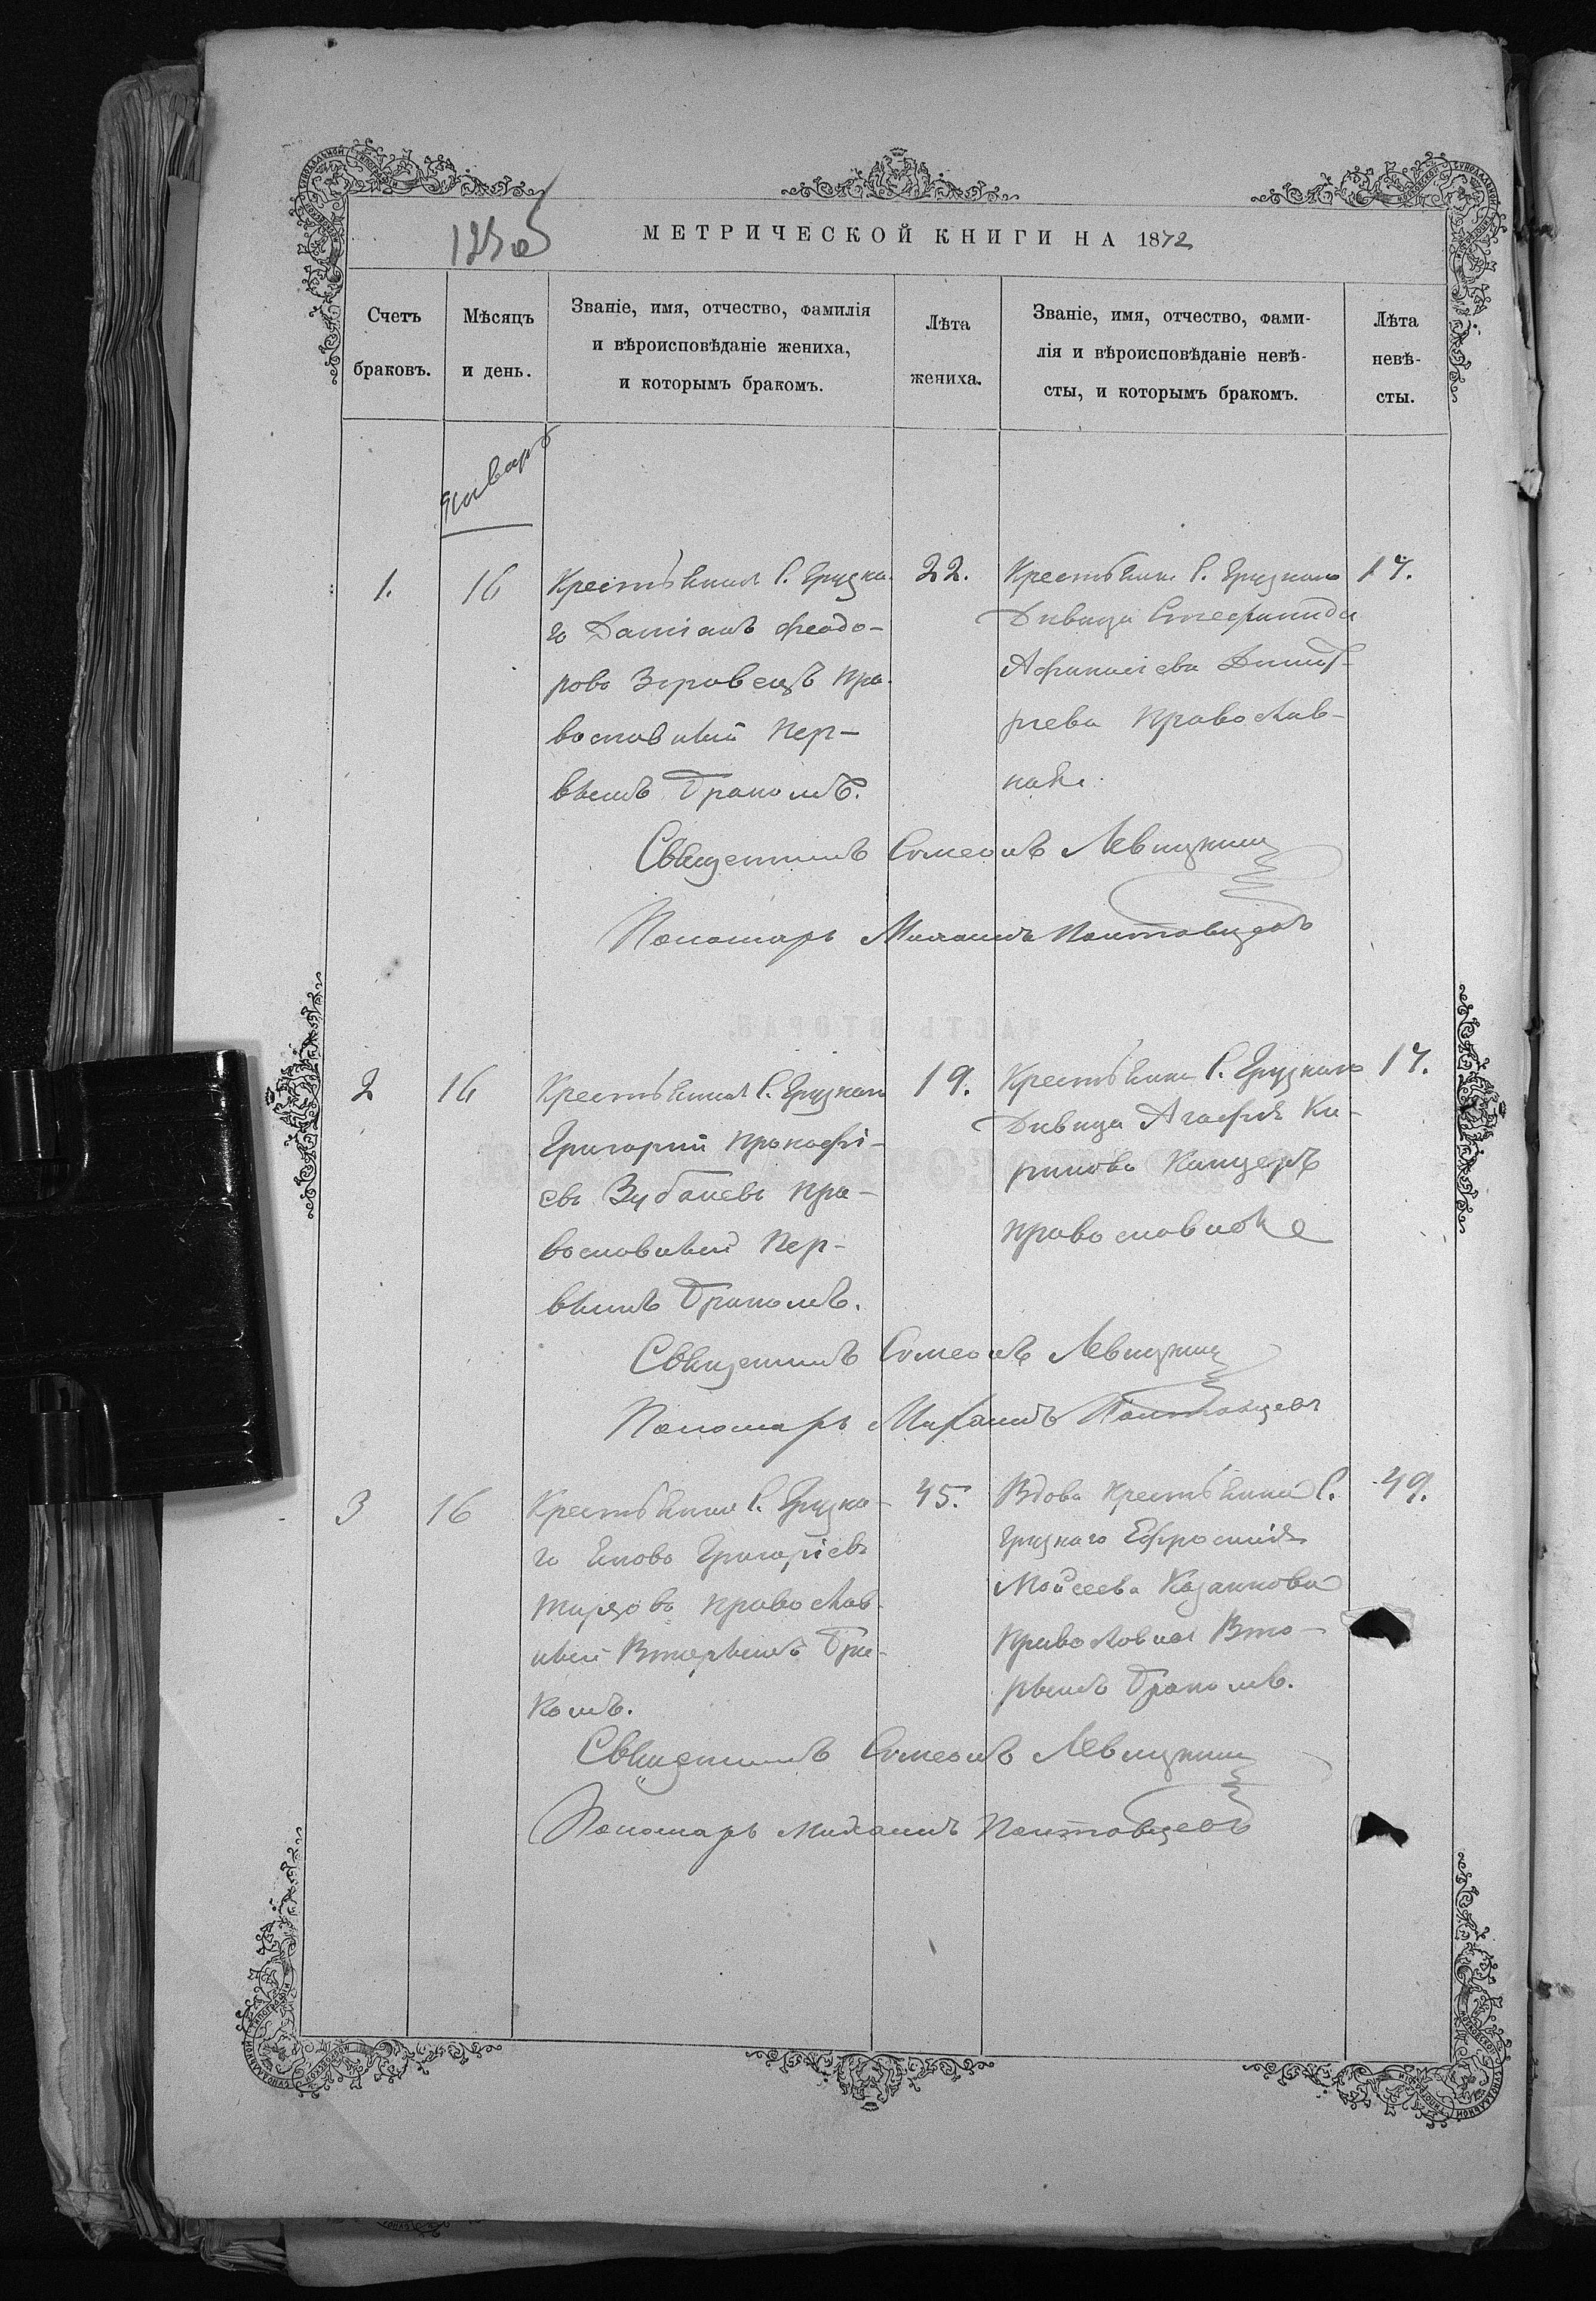 125об
МЕТРИЧЕСКОЙ КНИГИ НА 1872
Счетъ браковъ.
Мѣсяцъ и день.
Званіе, имя, отчество, фамилія
и вѣроисповѣданіе жениха,
и которымъ бракомъ.
Лѣта жениха.
Званіе, имя, отчество, фами-
лія и вѣроисповѣданіе невѣ-
сты, и которымъ бракомъ.
Лѣта невѣ-
сты.
Январь
1.
16
Крестьянинъ С. Грузка-
го Даміанъ Феодо-
ровъ Здравецъ Пра-
вославный Пер-
вымъ Бракомъ.
22.
Крестьянка С. Грузкаго
Дивица Стефанида
Афанасіева Димит-
ріева Православ-
ная.
17.
Священникъ Симеонъ Левицкий
Пономарь Михаилъ Полтавцевъ
2
16
Крестьянинъ С. Грузкаго
Григорий Прокофі-
евъ Зубаневъ Пра-
вославный Пер-
вымъ Бракомъ.
19.
Крестьянка С. Грузкаго
Дивица Агафія Ки-
рилова Канцеръ
Православная
17.
Священникъ Симеонъ Левицкий
Пономарь Михаилъ Полтавцевъ
3
16
Крестьянинъ С. Грузка-
го Яковъ Григоріевъ
Православ-
ный Вторымъ Бра-
комъ.
45.
Вдова Крестьянина С.
Грузкаго Ефросинія
Моисеева Казанкова
Православная Вто-
рымъ Бракомъ.
49.
Священникъ Симеонъ Левицкий
Пономарь Михаилъ Полтавцевъ